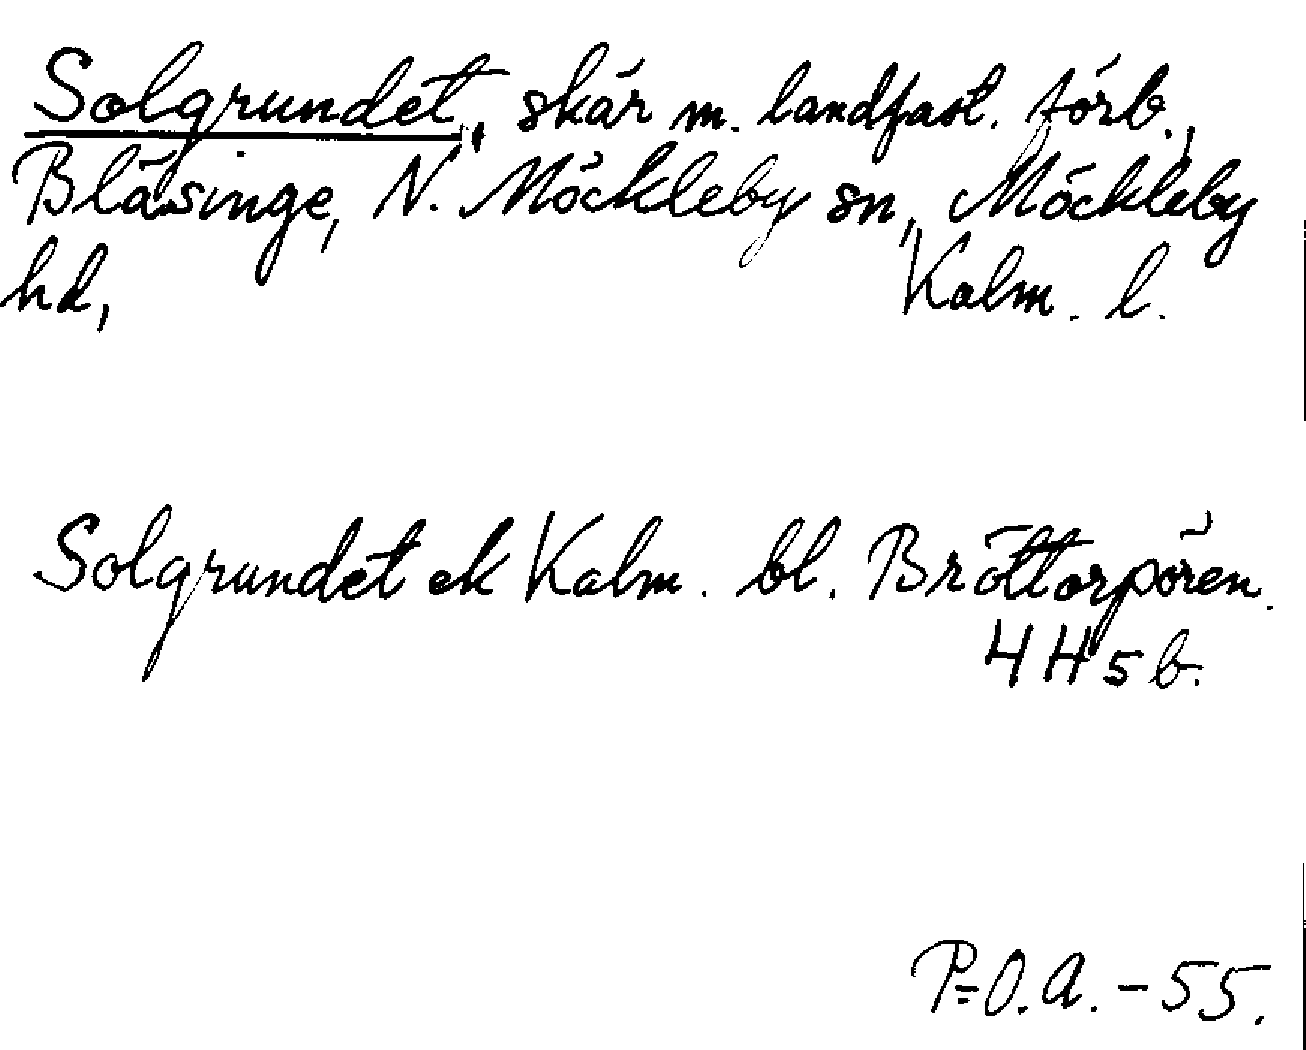 Solgrundet, skär m. landfast. förb.,
Bläsinge, N. Möckleby sn, Möckleby
hd, Kalm. l.
Solgrundet ek Kalm. bl. Bröttorpören.
4 H 5 b.
P=O.A. - 55.